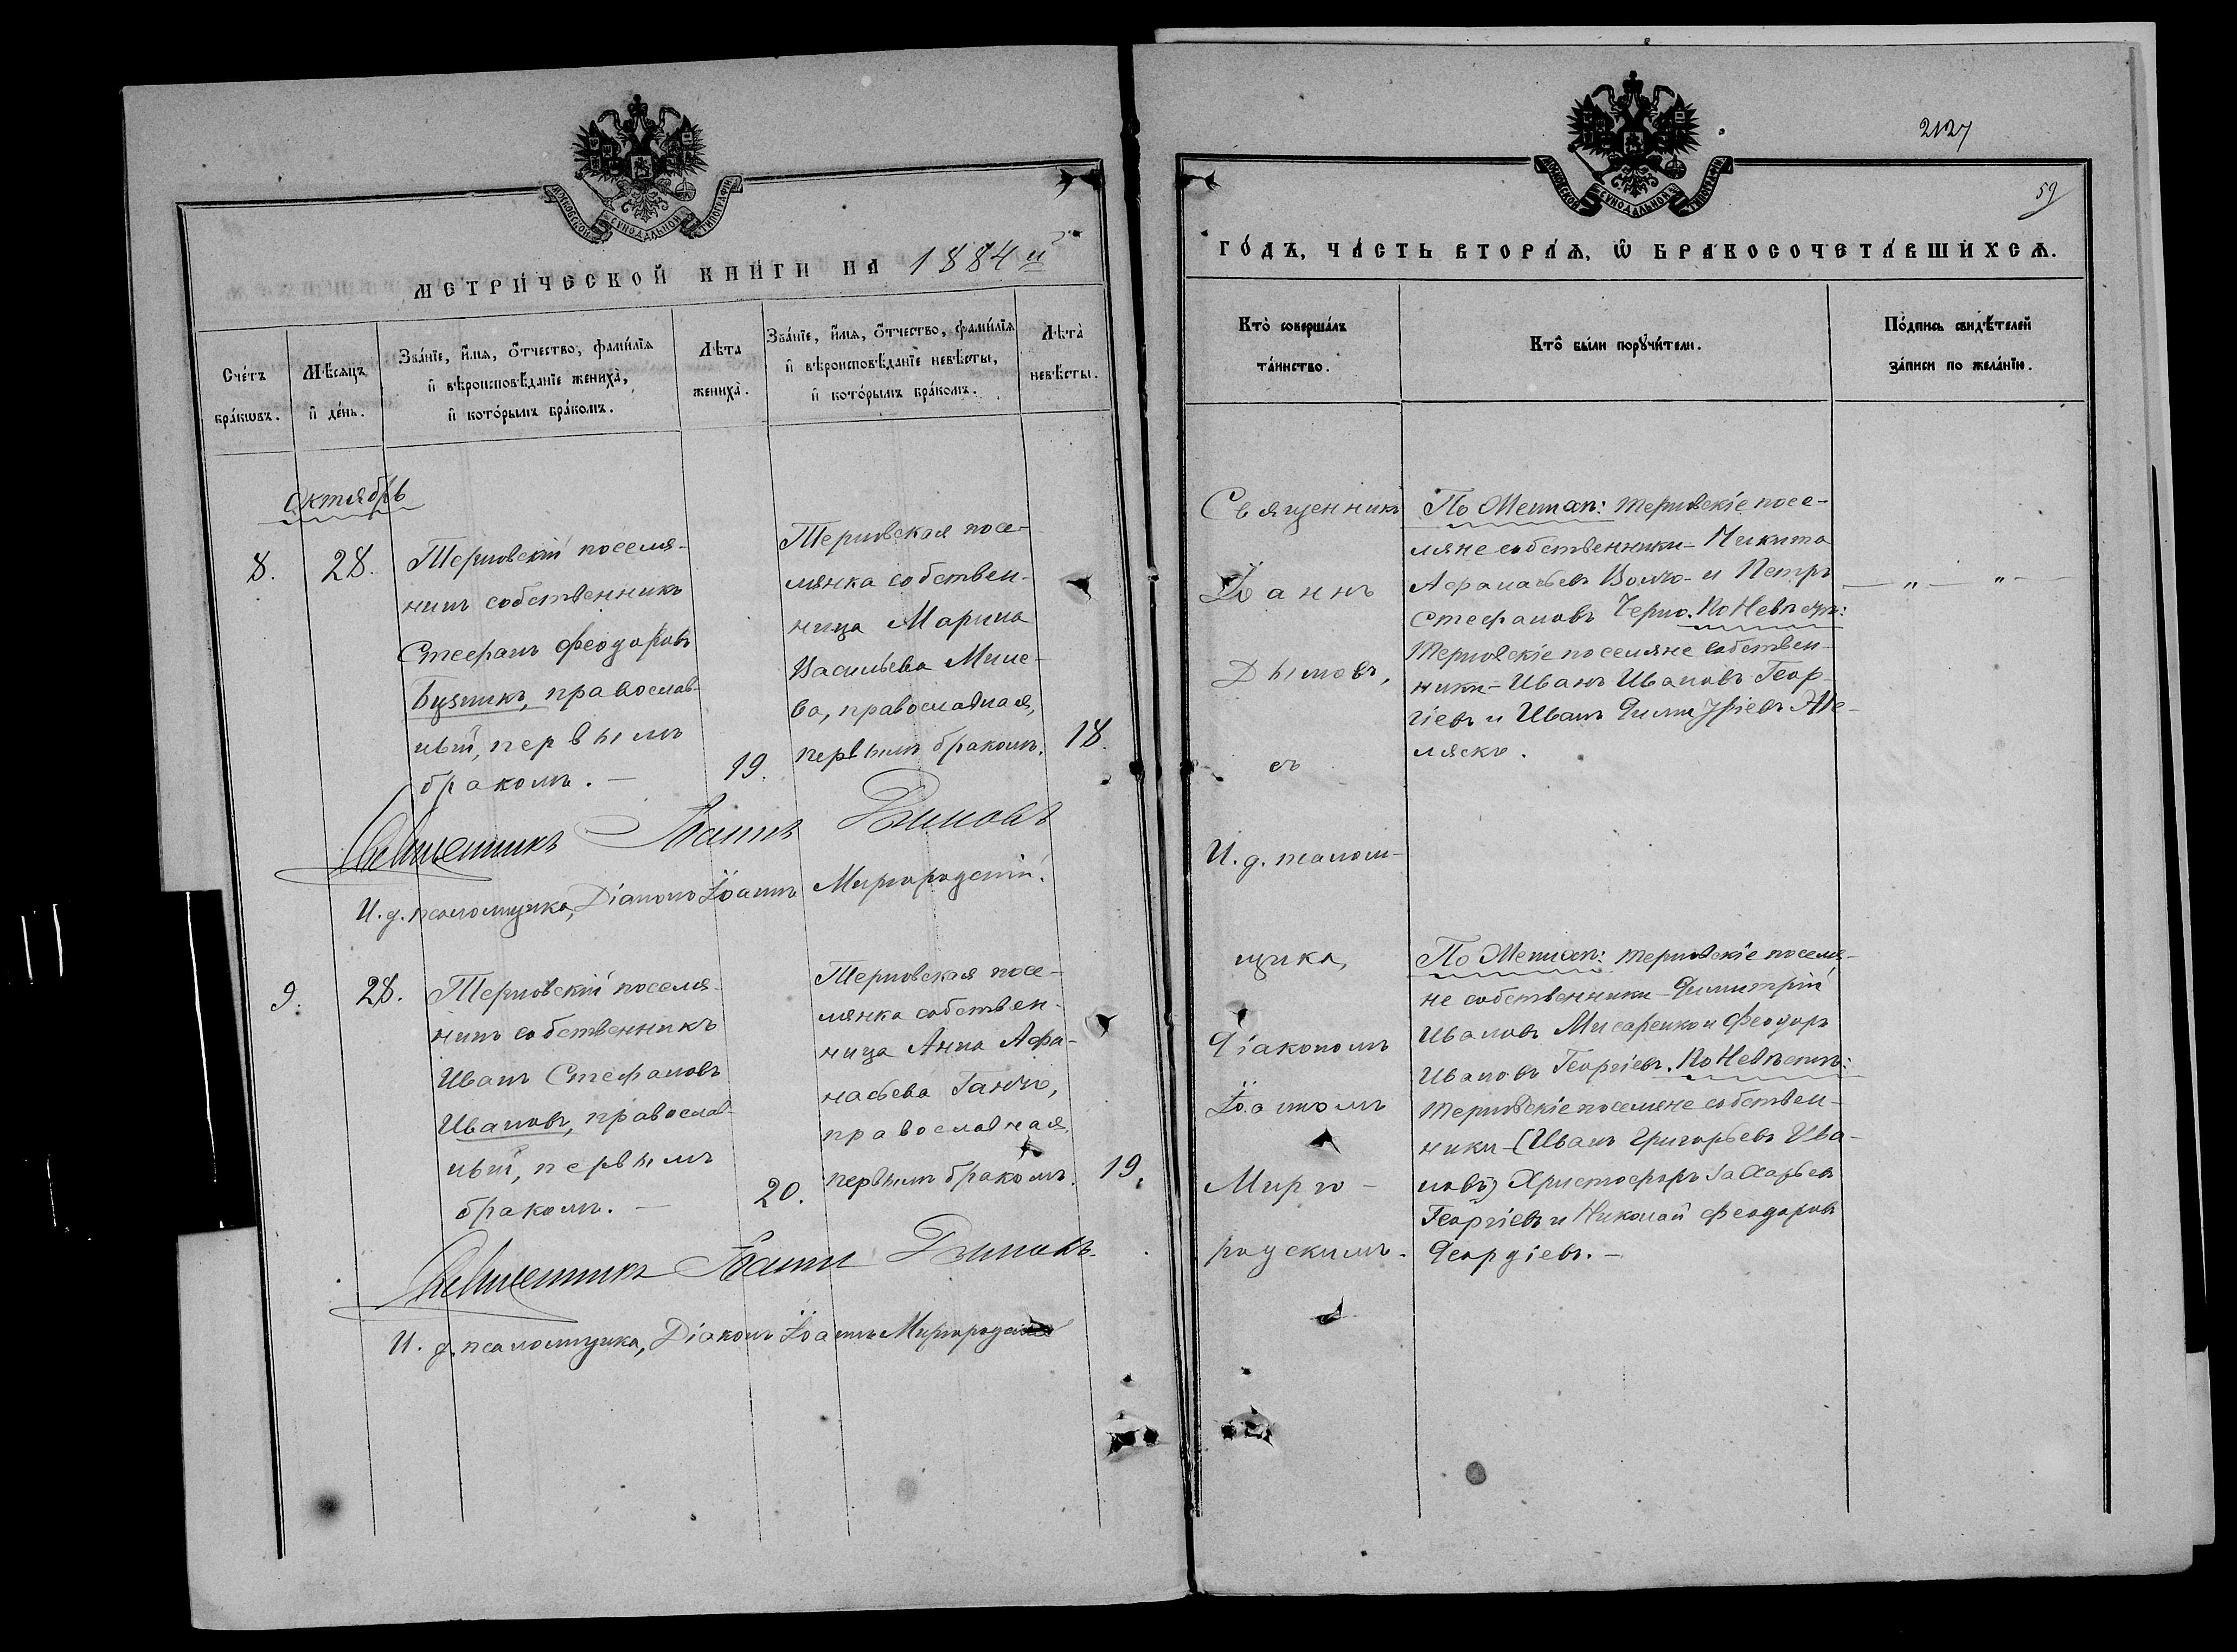 МОСКОВСКОЙ СУНОДАЛЬНОЙ ТИПОГРАФІИ
МЕТРИЧЕСКОЙ КНИГИ НА 1884й
Счетъ браковъ.
Мѣсяцъ и день.
Званіе, имя, отчество, фамилія и вѣроисповѣданіе жениха, и которымъ бракомъ.
Лѣта жениха.
Званіе, имя, отчество, фамилія и вѣроисповѣданіе невѣсты, и которымъ бракомъ.
Лѣта невѣсты.
Октябрь
8.
28.
Терновскій поселя-
нинъ собственникъ
Стефанъ Феодоровъ
Бузникъ, православ-
ный, первымъ
бракомъ. —
19.
Терновская посе-
лянка собствен-
ница Марина
Васильева Миле-
ва, православная,
первымъ бракомъ.
18.
Священникъ Іоаннъ Дымовъ
И. д. псаломщика, Діаконъ Іоаннъ Миргородскій.
9.
28.
Терновскій поселя-
нинъ собственникъ
Иванъ Стефановъ
Ивановъ, православ-
ный, первымъ
бракомъ. —
20.
Терновская посе-
лянка собствен-
ница Анна Афа-
насьева Ганчо,
православная,
первымъ бракомъ.
19.
Священникъ Іоаннъ Дымовъ.
И. д. псаломщика, Діаконъ Іоаннъ Миргородскій
2127
59
МОСКОВСКОЙ СУНОДАЛЬНОЙ ТИПОГРАФІИ
ГОДЪ, ЧАСТЬ ВТОРАЯ, Ѿ БРАКОСОЧЕТАВШИХСЯ.
Кто совершалъ таинство.
Кто были поручители.
Подпись свидѣтелей записи по желанію.
Священникъ
Іоаннъ
Дымовъ,
съ
И. д. псалом-
щика,
Діакономъ
Іоанномъ
Мирго-
родскимъ.
По Жених: терновскіе посе-
ляне собственники — Никита
Афанасьевъ Волчо и Петръ
Стефановъ Черно. По Невѣст:
терновскіе поселяне собствен-
ники — Иванъ Ивановъ Геор-
гіевъ и Иванъ
ляскъ.
— " — " —
По Жених: терновскіе поселя-
не собственники — Димитрій
Ивановъ Писаренко и Феодоръ
Ивановъ Георгіевъ. По Невѣстѣ:
терновскіе поселяне собствен-
ники — (Иванъ Григорьевъ Ива-
новъ) Христофоръ Захарьев
Георгіевъ и Николай Феодоровъ
Георгіевъ. —